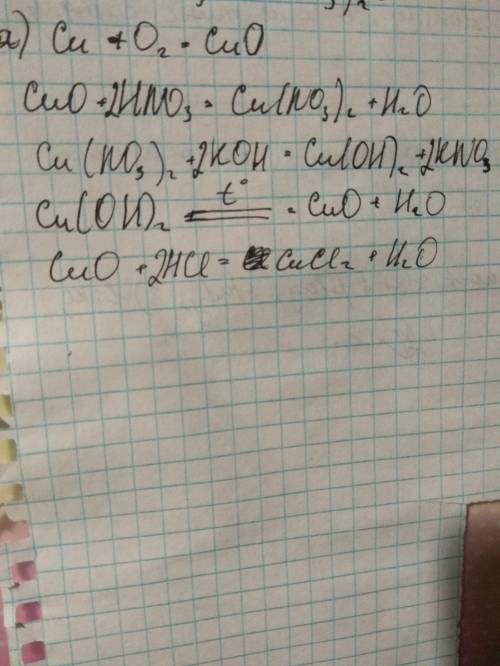 а) Cu + O₂ = CuO
CuO + 2HNO₃ = Cu(NO₃)₂ + H₂O
Cu(NO₃)₂ + 2KOH = Cu(OH)₂ + 2KNO₃
Cu(OH)₂ t° = CuO + H₂O
CuO + 2HCl = CuCl₂ + H₂O